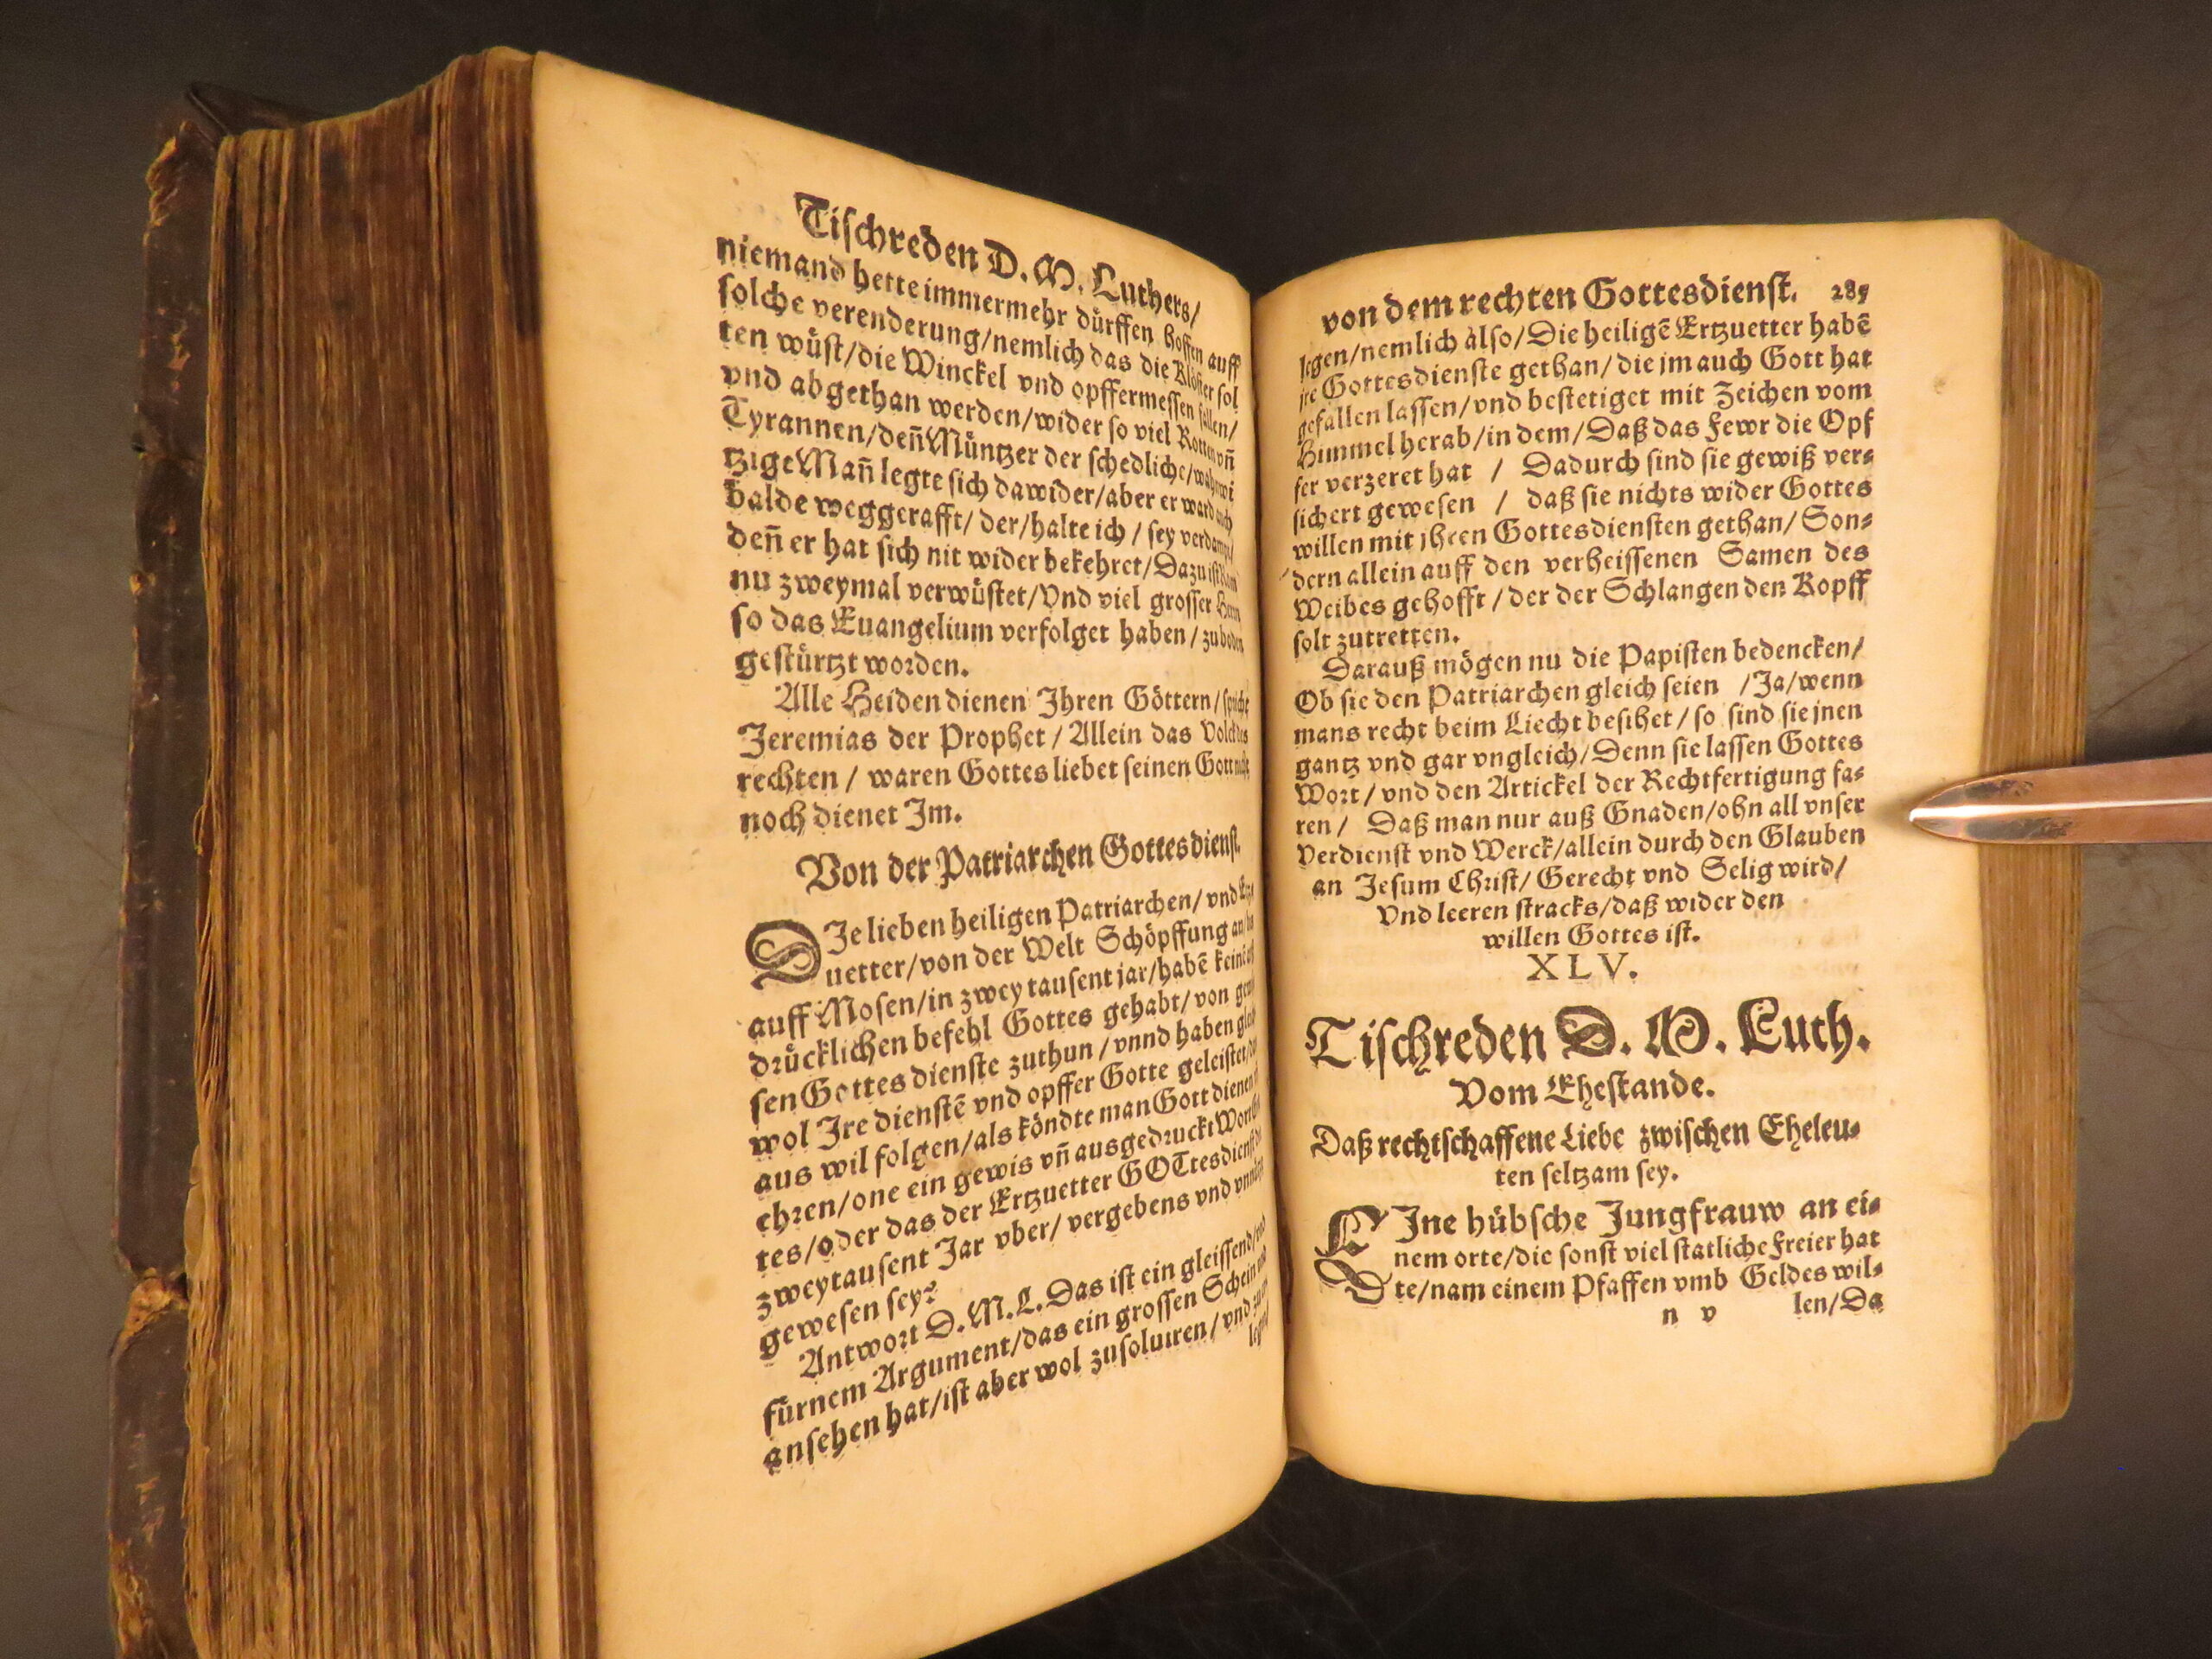 Tischreden D. M. Luthers/
niemand hette immermehr dürffen hoffen auff
solche verenderung/nemlich das die Klöster sol
ten wüst/die Winckel vnd opffermessen fallen/
vnd abgethan werden/wider so viel Rotten vñ
Tyrannen/deñ Müntzer der schedliche/wahnwi
tzige Mañ legte sich dawider/aber er ward auch
balde weggerafft/ der/halte ich / sey verdampt/
deñ er hat sich nit wider bekehret/Dazu ist Rom
nu zweymal verwüstet/Vnd viel grosser Herrn
so das Euangelium verfolget haben / zu boden
gestürtzt worden.
Alle Heiden dienen Ihren Göttern/ spricht
Jeremias der Prophet / Allein das Volck des
rechten / waren Gottes liebet seinen Gott nicht
noch dienet Im.
Von der Patriarchen Gottesdienst.
DIe lieben heiligen Patriarchen/ vnd Ertz-
uetter/von der Welt Schöpffung an/
auff Mosen/in zwey tausent jar/habē keinē
drücklichen befehl Gottes gehabt/ von
sen Gottesdienste zuthun / vnnd haben
wol Ire dienstē vnd opffer Gotte geleistet/
aus wil folgen/als köndte man Gott dienen
ehren/one ein gewis vñ ausgedruckt Wort
tes/oder das der Ertzuetter GOTtesdienst
zweytausent Jar vber/ vergebens vnd
gewesen sey?
Antwort D. M. L. Das ist ein gleissend/
fürnem Argument/das ein grossen Schein
ansehen hat/ist aber wol zusoluiren / vnd
von dem rechten Gottesdienst. 285
legen/nemlich also/Die heiligē Ertzuetter habē
jre Gottesdienste gethan/ die jm auch Gott hat
gefallen lassen/vnd bestetiget mit Zeichen vom
Himmel herab/in dem/Daß das Fewr die Opf
fer verzeret hat / Dadurch sind sie gewiß ver-
sichert gewesen / daß sie nichts wider Gottes
willen mit jhren Gottesdiensten gethan/ Son-
dern allein auff den verheissenen Samen des
Weibes gehofft / der der Schlangen den Kopff
solt zutretten.
Darauß mögen nu die Papisten bedencken/
Ob sie den Patriarchen gleich seien /Ja/wenn
mans recht beim Liecht besihet / so sind sie jnen
gantz vnd gar vngleich/Denn sie lassen Gottes
Wort / vnd den Artickel der Rechtfertigung fa-
ren / Daß man nur auß Gnaden/ohn all vnser
Verdienst vnd Werck/allein durch den Glauben
an Jesum Christ/ Gerecht vnd Selig wird/
Vnd leeren stracks/daß wider den
willen Gottes ist.
XLV.
Tischreden D. M. Luth.
Vom Ehestande.
Daß rechtschaffene Liebe zwischen Eheleu-
ten seltzam sey.
EIne hübsche Jungfrauw an ei-
nem orte/die sonst viel statliche Freier hat
te/nam einem Pfaffen vmb Geldes wil-
n v len/Da